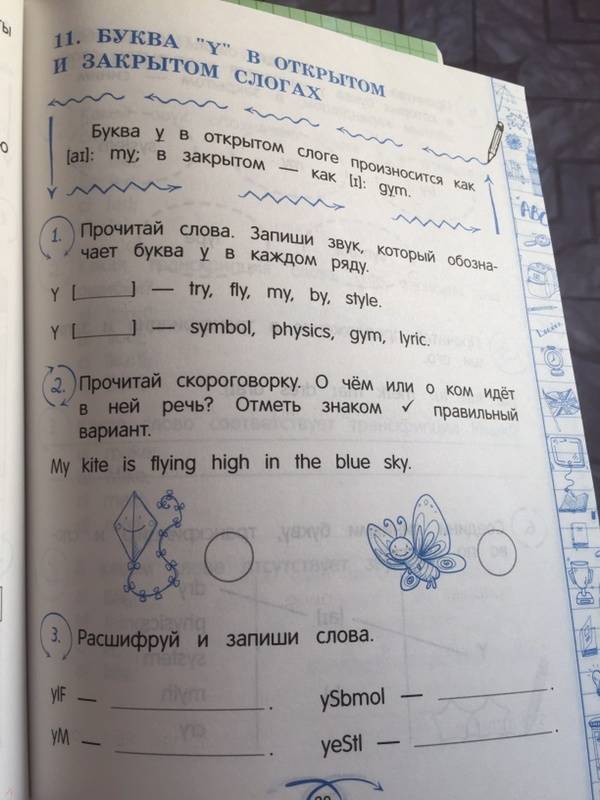 11. БУКВА "Y" В ОТКРЫТОМ
И ЗАКРЫТОМ СЛОГАХ
Буква y в открытом слоге произносится как
[aɪ]: my; в закрытом — как [ɪ]: gym.
1. Прочитай слова. Запиши звук, который обозна-
чает буква y в каждом ряду.
Y [ ] — try, fly, my, by, style.
Y [ ] — symbol, physics, gym, lyric.
2. Прочитай скороговорку. О чём или о ком идёт
в ней речь? Отметь знаком ✓ правильный
вариант.
My kite is flying high in the blue sky.
3. Расшифруй и запиши слова.
ylF — ____.
ySbmol — ____.
yM — ____.
yeStl — ____.
ABC